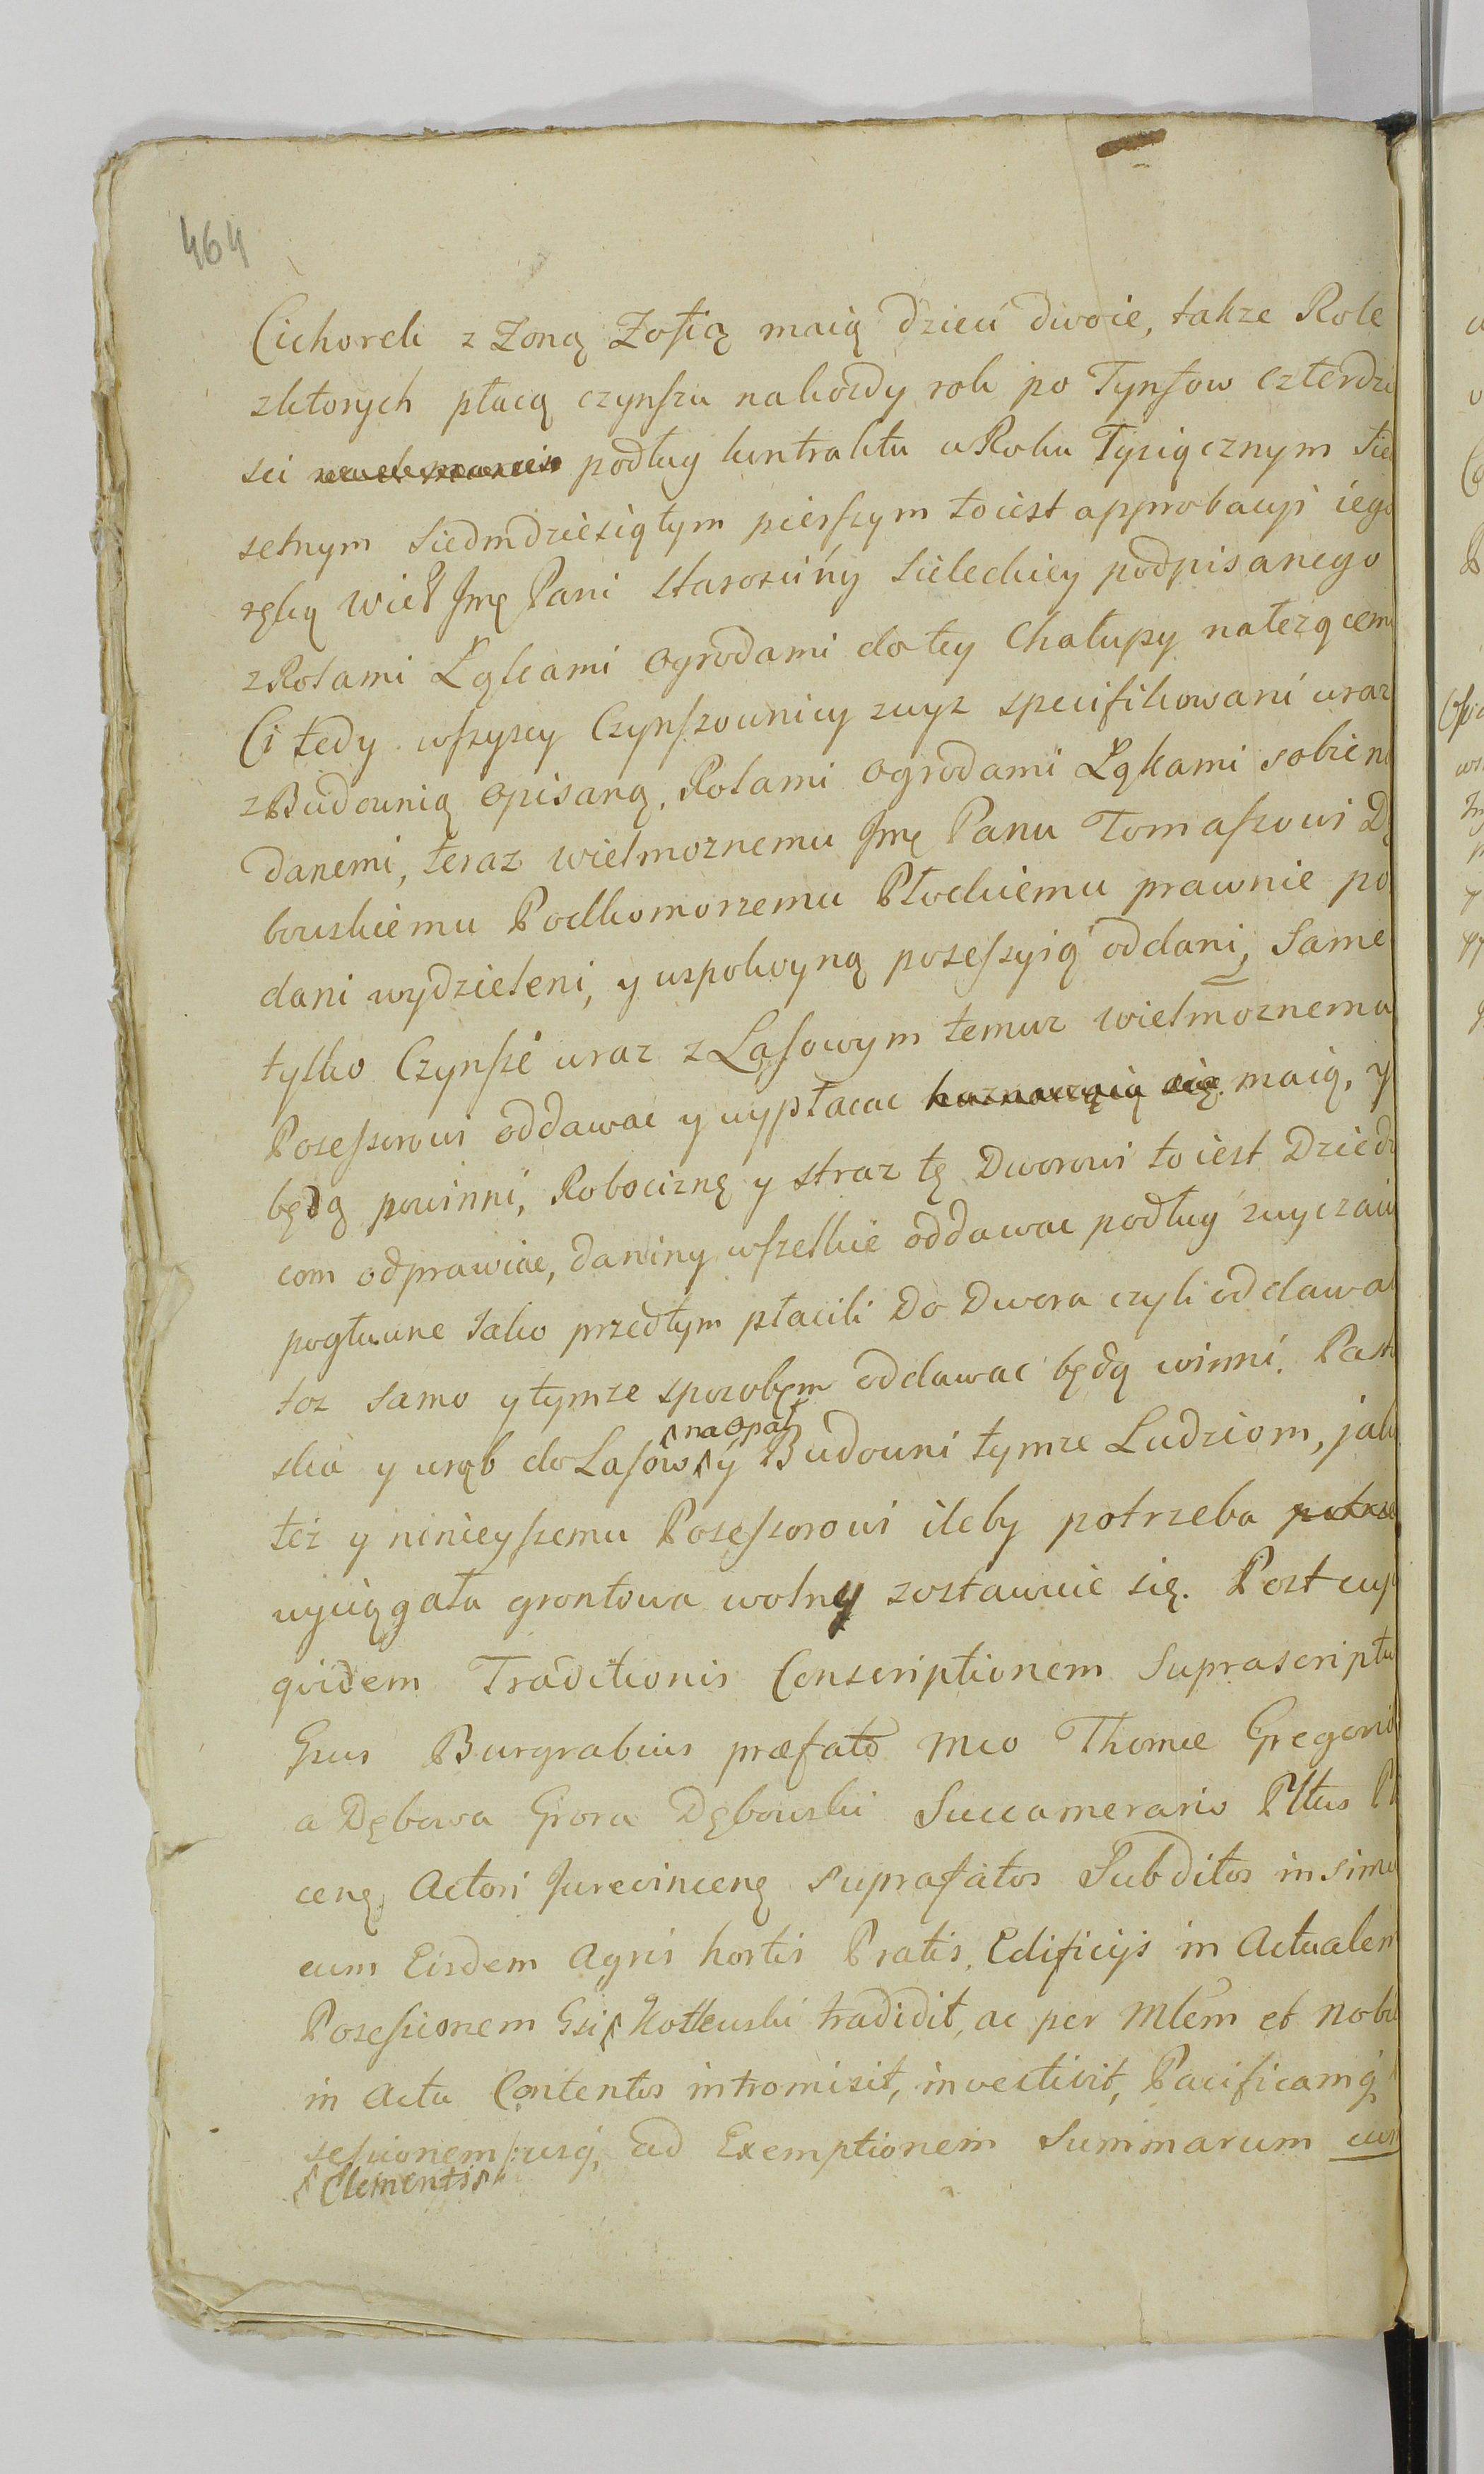 464
Cichorek z Zoną Zofią maią dzieci dwoie, takze Role
zktorych płacą czynszu nakozdy rok po Tynfow czterdzi
sci podług kontraktu w Roku Tysiącznym Sied
setnym Siedmdziesiątym pierszym toiest approbacyi iego
ręką Wiel Jmę Pani Staroscińy Sieleckiey podpisanego
z Rolami Łąkami Ogrodami do tey Chałupy należącemi
Ci tedy wszyscy Czynszownicy zwyz specifikowani wraz
z Budownią opisaną, Rolami Ogrodami Łąkami sobie na
danemi, teraz wielmoznemu Jmę Panu Tomaszowi Dę
bowskiemu Podkomorzemu Płockiemu prawnie po
dani wydzieleni, y wspokoyną posessyią oddani, Same
tylko Czynsze wraz z Lasowym temuz wielmoznemu
Posessorowi oddawac y wypłacac maią, y
będą powinni, Robociznę y straz tę Dworowi to iest Dziedzi
com odprawiac, daniny wszelkie oddawac podług zwyczaiu
pogłowne Jako przedtym płacili Do Dwora czyli oddawal
toz samo y tymze sposobem oddawac będą winni. Past
na Opał
ska y wrąb do Lasow y Budowni tymze Ludziom, jako
tez y ninieyszemu Posessorowi ileby potrzeba
wyciągała grontowa wolny zostawuie się. Post cuju
qvidem Traditionis Conscriptionem Suprascriptu
Gsus Burgrabius præfato Mco Thomæ Gregorio
a Dębowa Gora Dębowski Succamerario Pltus Pl
ceng, Actori Jurevinceng Suprafatos Subditos insimu
cum Eisdem Agris hortis Pratis, Edificijs in Actualem
Possessionem Gsi Kotkowski tradidit, ac per Mlem et Nobi
in Actu Contentos intromisit, investivit, Pacificamq
sessionem usq, ad Exemptionem Summarum cum
Clementis